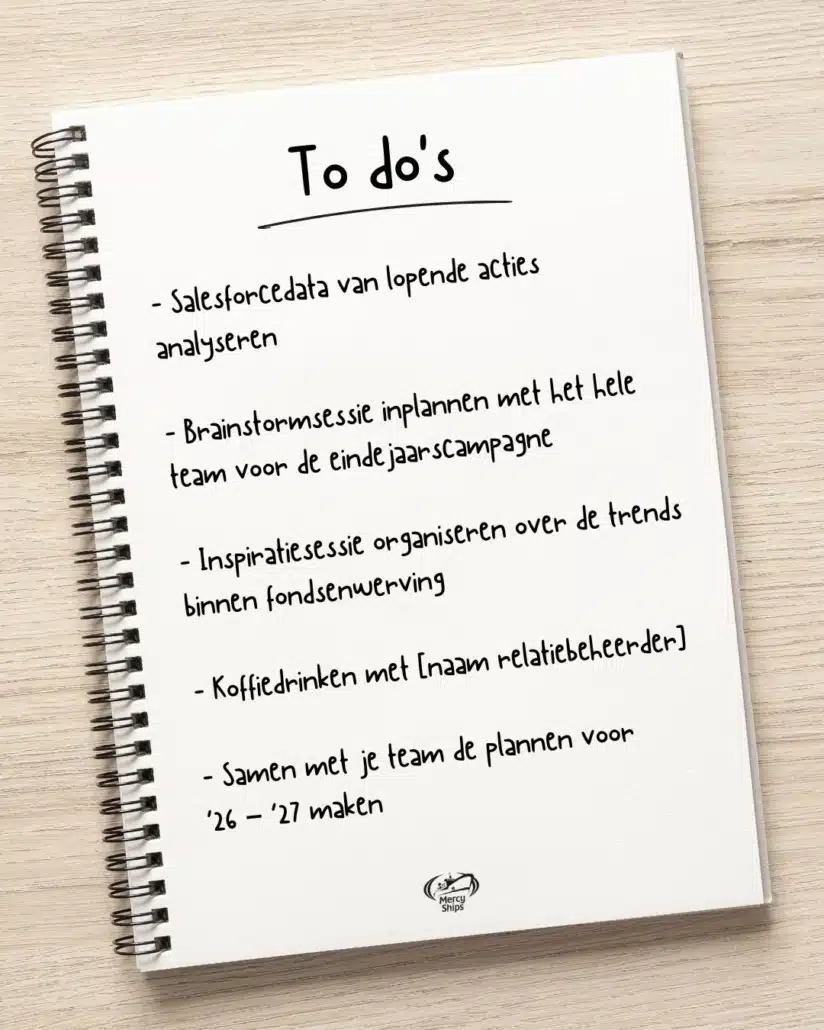 To do's
- Salesforcedata van lopende acties
analyseren
- Brainstormsessie inplannen met het hele
team voor de eindejaarscampagne
- Inspiratiesessie organiseren over de trends
binnen fondsenwerving
- Koffiedrinken met [naam relatiebeheerder]
- Samen met je team de plannen voor
'26 – '27 maken
Mercy
Ships